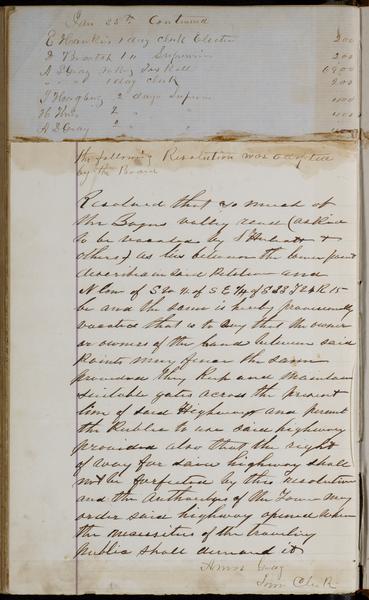 Jan 25th Continued
E Hawkins 1 day clerk Election 200
1 " 200
A D Gray Tax Roll
" " 1 day clerk 200
2 days 400
H 2 " "
A D Gray 2 "
the following Resolution was adopted
by the Board
Resolved that so much of
the Bogus valley road (asked
to be vacated by &
others) as lies between the lower point
described in said Petition and
N line of S W ¼ of S E ¼ of S 33 T 24 R 15
be and the same is hereby provisionally
vacated that is to say that the owner
or owners of the land between said
Points may fence the same
provided they keep and maintain
suitable gates across the present
line of said Highway and permit
the Public to use said highway
provided also that the right
of way for said highway shall
not be forfeited by this resolution
and the Authoritys of the Town may
order said highway opened when
the necessities of the traveling
public shall demand it
Amos Gray
Town Clerk